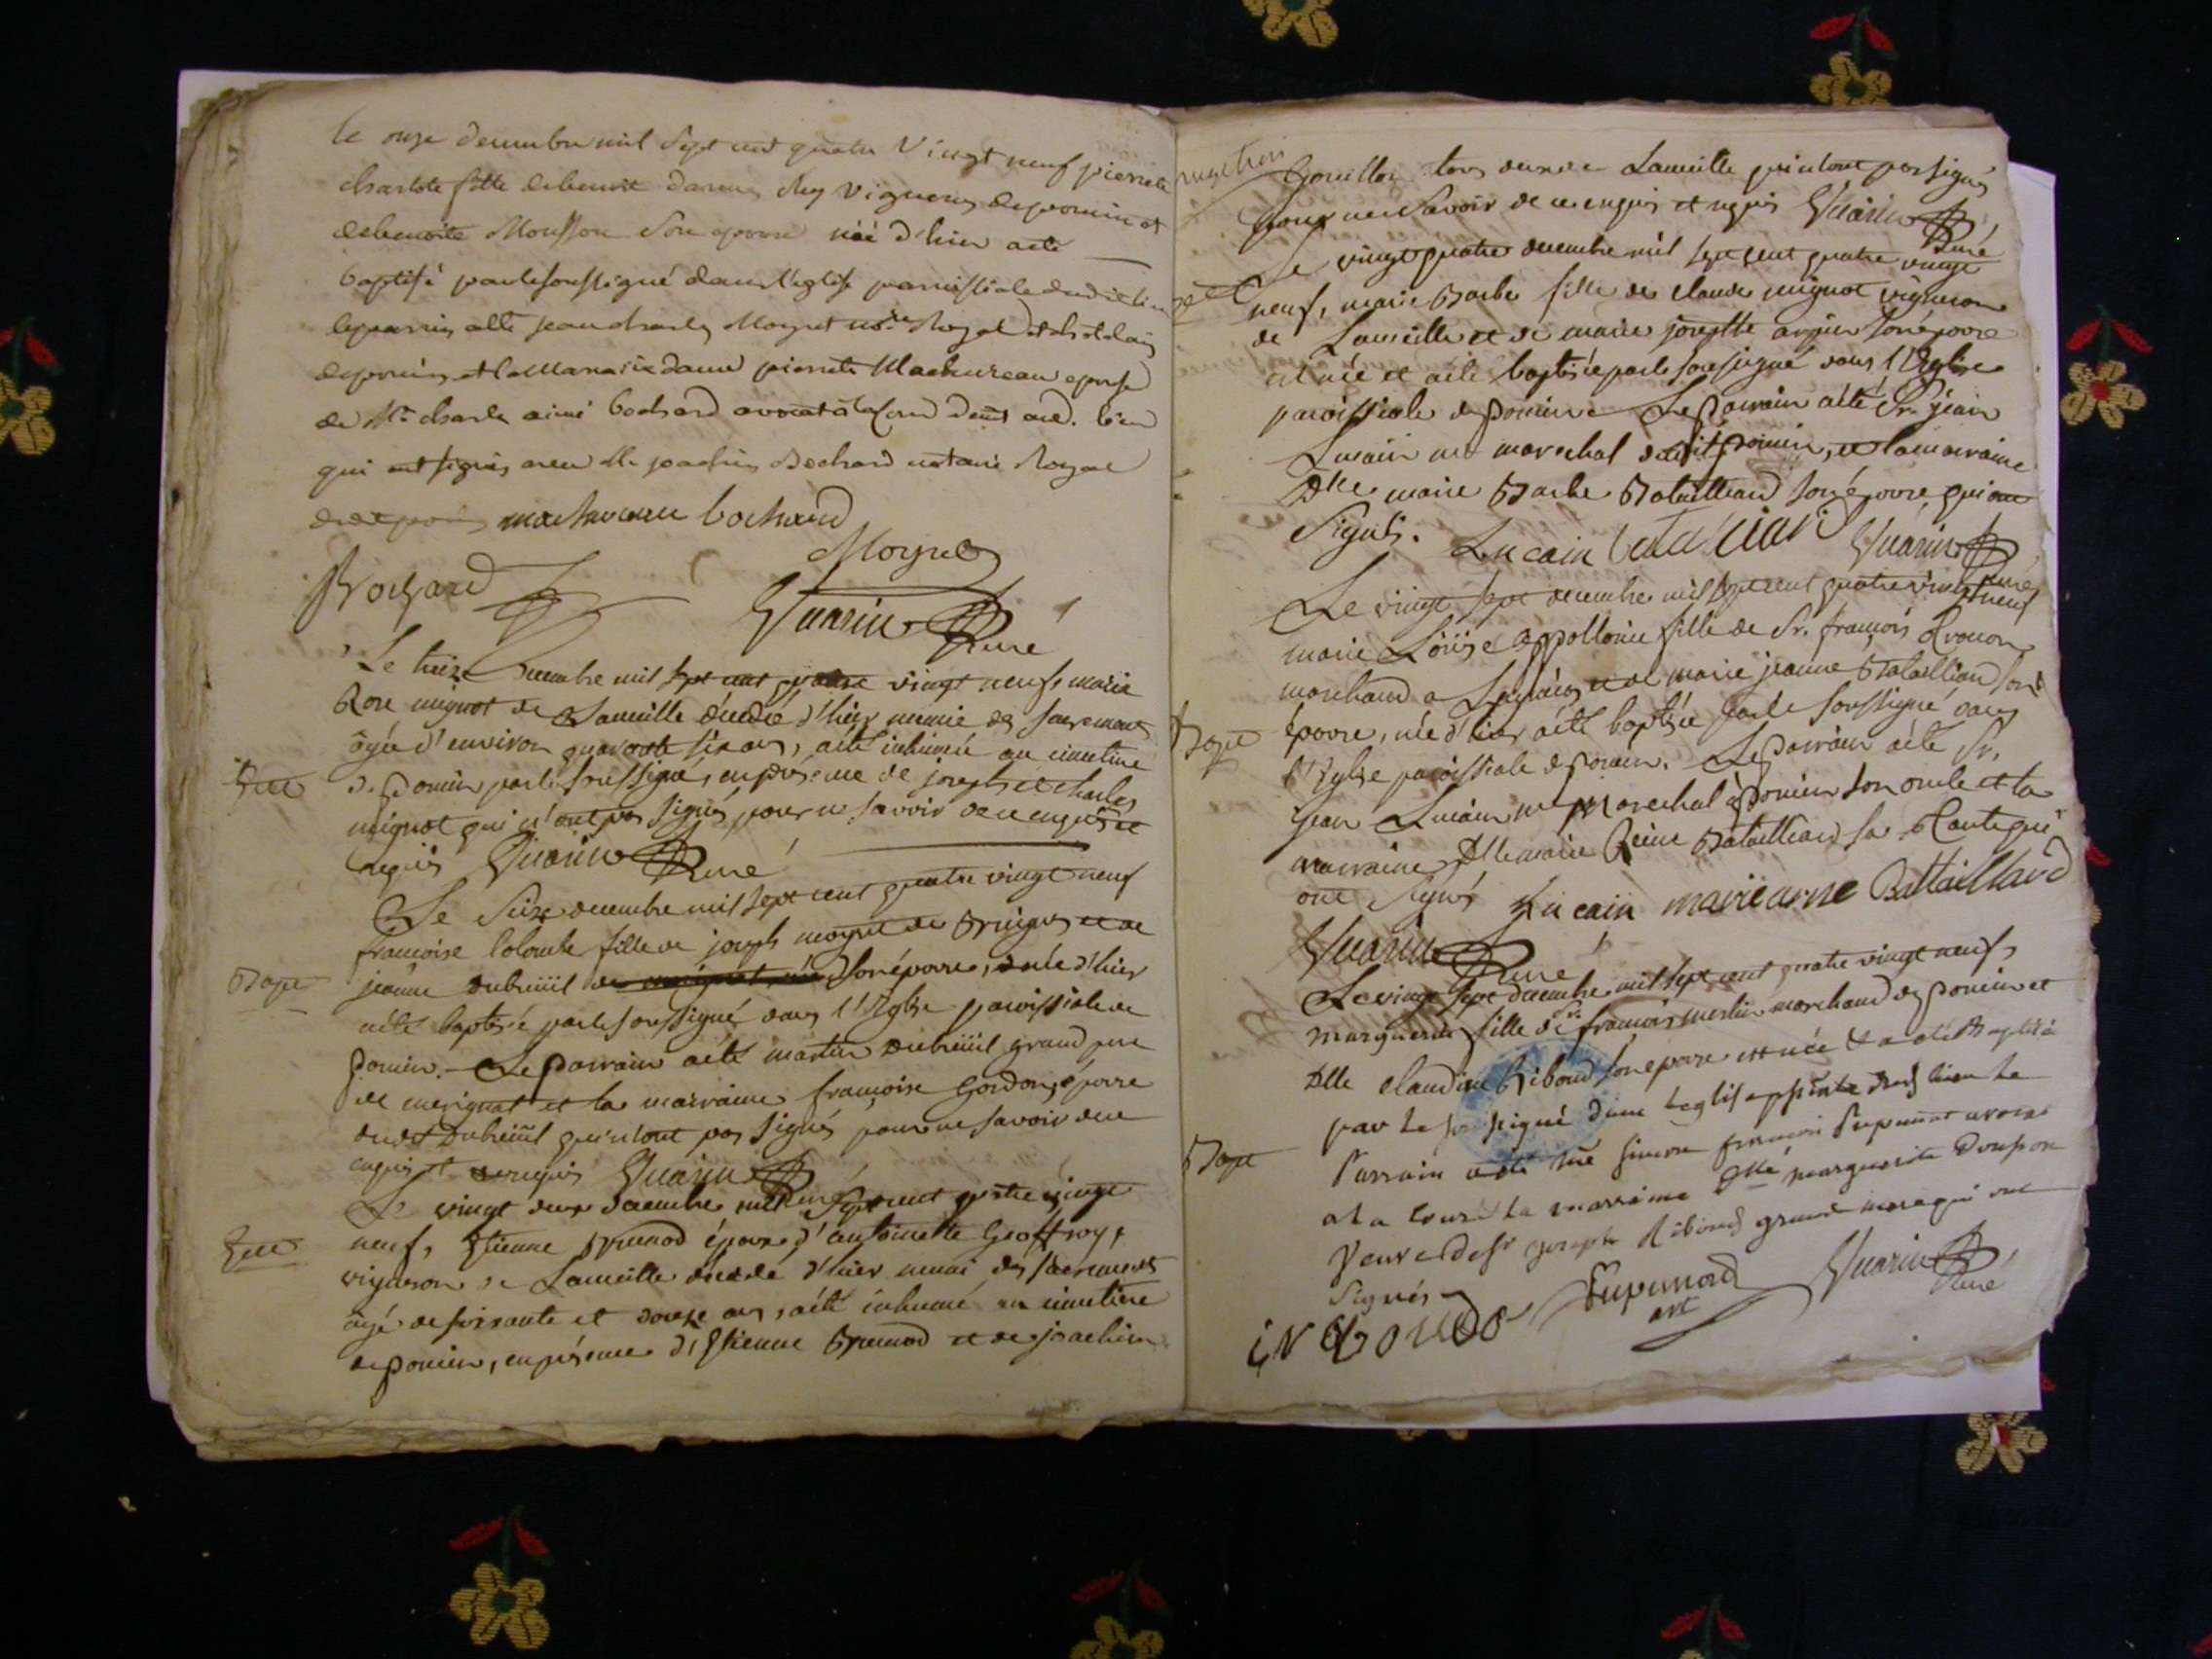 le onze decembre mil sept cent quatre vingt neuf pierrete
charlote fille de benoit vigneron de poncin et
de benoite Mousson son epouse née d'hier a été
baptisé par le soussigné dans l'eglise parroissiale dudit lieu
le parrin a été jean charles Moynet no.re Royal et chatelain
de poncin et la Maraine dame pierrete Machureau epouse
de Mr. charles aimé bochard avocat à la Cour
qui ont signés avec Mr. joachin Bochard notaire Royal
machureau bochard
Moynet
Bochard
Guarin Curé
Le treize decembre mil sept cent quatre vingt neuf, marie
Rose mignot de Lameille décédée d'hier munie des sacremens
âgée d'environ quarante six ans, a été inhumée au cimetiere
Sep.re
de Poncin par le soussigné, en présence de joseph et charles
mignot qui n'ont pas signés pour ne savoir de ce enquis et
requis Guarin Curé
Le Seize decembre mil sept cent quatre vingt neuf
françoise Colombe fille de joseph moynet de et de
Bapt
jeanne dubreüil son épouse, née d'hier
a été baptisée par le soussigné dans l'Eglise paroissiale de
Poncin. Le Parrain a été martin dubreüil grand pere
de merignat et la marraine françoise Gordon, épouse
dudit Dubreüil qui n'ont pas signés pour ne savoir de ce
enquis et requis Guarin Curé
Le vingt deux decembre mil sept cent quatre vingt
Sep.re
neuf, Etienne Brunod époux d'antoinette Geoffroy,
vigneron de Lameille décédé d'hier muni des sacremens
âgé de soixante et douze ans, a été inhumé au cimetiere
de poncin, en présence d'Etienne Brunod et de joachim
Gouillon tous deux de Lameille qui n'ont pas signés
pour ne savoir de ce enquis et requis Guarin Curé
Le vingt quatre decembre mil sept cent quatre vingt
neuf, marie Barbe fille de claude mignot vigneron
de Lameille et de marie josephte son épouse
est née et a été baptisée par le soussigné dans l'Eglise
paroissiale de Poncin. Le Parrain a été Sr. jean
Lucain me marechal dudit Poncin, et la marraine
Dlle marie Barbe Bataillard son épouse, qui ont
Signés. Lucain Guarin Curé
Le vingt sept decembre mil sept cent quatre vingt neuf
marie Loüise appollonie fille de Sr. françois
marchand a et de marie jeanne Bataillard son
Bapt
épouse, née d'hier a été baptisée par le soussigné dans
l'Eglise paroissiale de Poncin. Le Parrain a été Sr.
jean Lucain me marechal à Poncin son oncle et la
marraine Dlle marie Reine Bataillard sa tante qui
ont Signés Lucain marie Battaillard
Guarin Curé
Le vingt sept decembre mil sept cent quatre vingt neuf,
marguerite fille de Sr. francois merlin marchand de poncin et
Dlle claudine Riboud son epouse est née & a été Baptisée
par le soussigné dans l'eglise dud lieu le
Bapt
Parrain a été me simon francois avocat
a la cour & la marraine Dlle marguerite
Veuve de Sr joseph Riboud grand mere qui ont
Signés
Guarin Curé